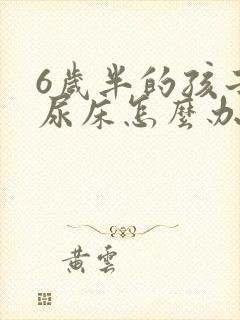 6歲半的孩子
尿床怎麼办
黄雲